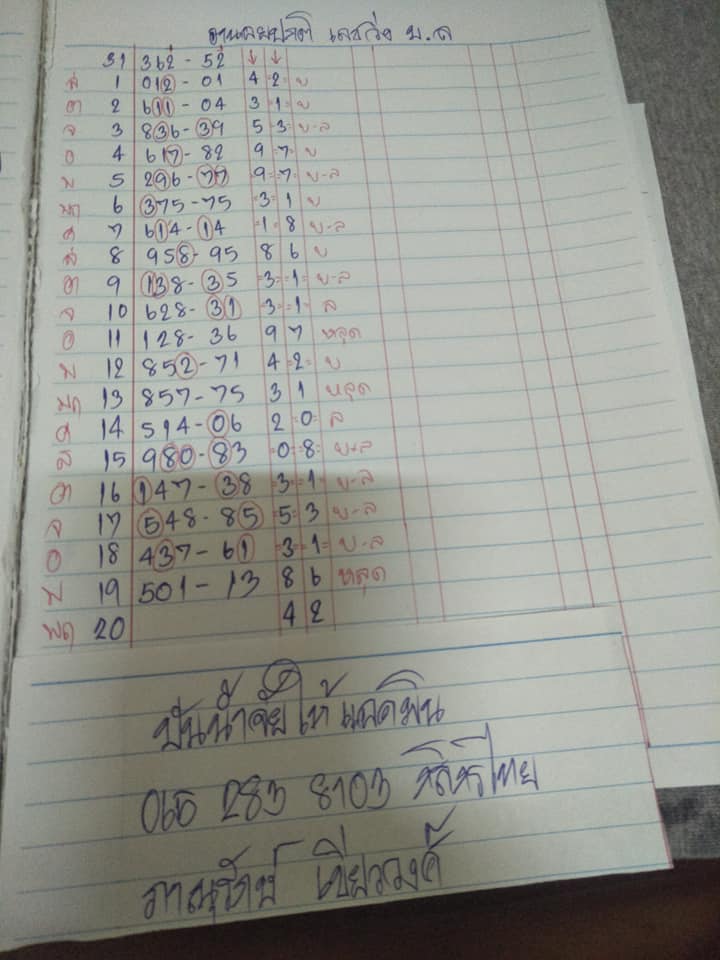 ฮานอยปกติ เลขวิ่ง บ.ล
31 362 - 52 ↓ ↓
ส 1 012 - 01 4 2 บ
อา 2 611 - 04 3 1 บ
จ 3 836 - 39 5 3 บ-ล
อ 4 617 - 82 9 7 บ
พ 5 296 - 77 9 7 บ-ล
พฤ 6 375 - 75 3 1 บ
ศ 7 614 - 14 1 8 บ-ล
ส 8 958 - 95 8 6 บ
อา 9 138 - 35 3 1 บ-ล
จ 10 628 - 31 3 1 ล
อ 11 128 - 36 9 7 หลุด
พ 12 852 - 71 4 2 บ
พฤ 13 857 - 75 3 1 หลุด
ศ 14 514 - 06 2 0 ล
ส 15 980 - 83 0 8 บ-ล
อา 16 147 - 38 3 1 บ-ล
จ 17 548 - 85 5 3 บ-ล
อ 18 437 - 61 3 1 บ-ล
พ 19 501 - 13 8 6 หลุด
พฤ 20 4 2
ปันน้ำใจให้แอดมิน
065 283 8103 กสิกรไทย
ภาณุรักษ์ เขียววงค์